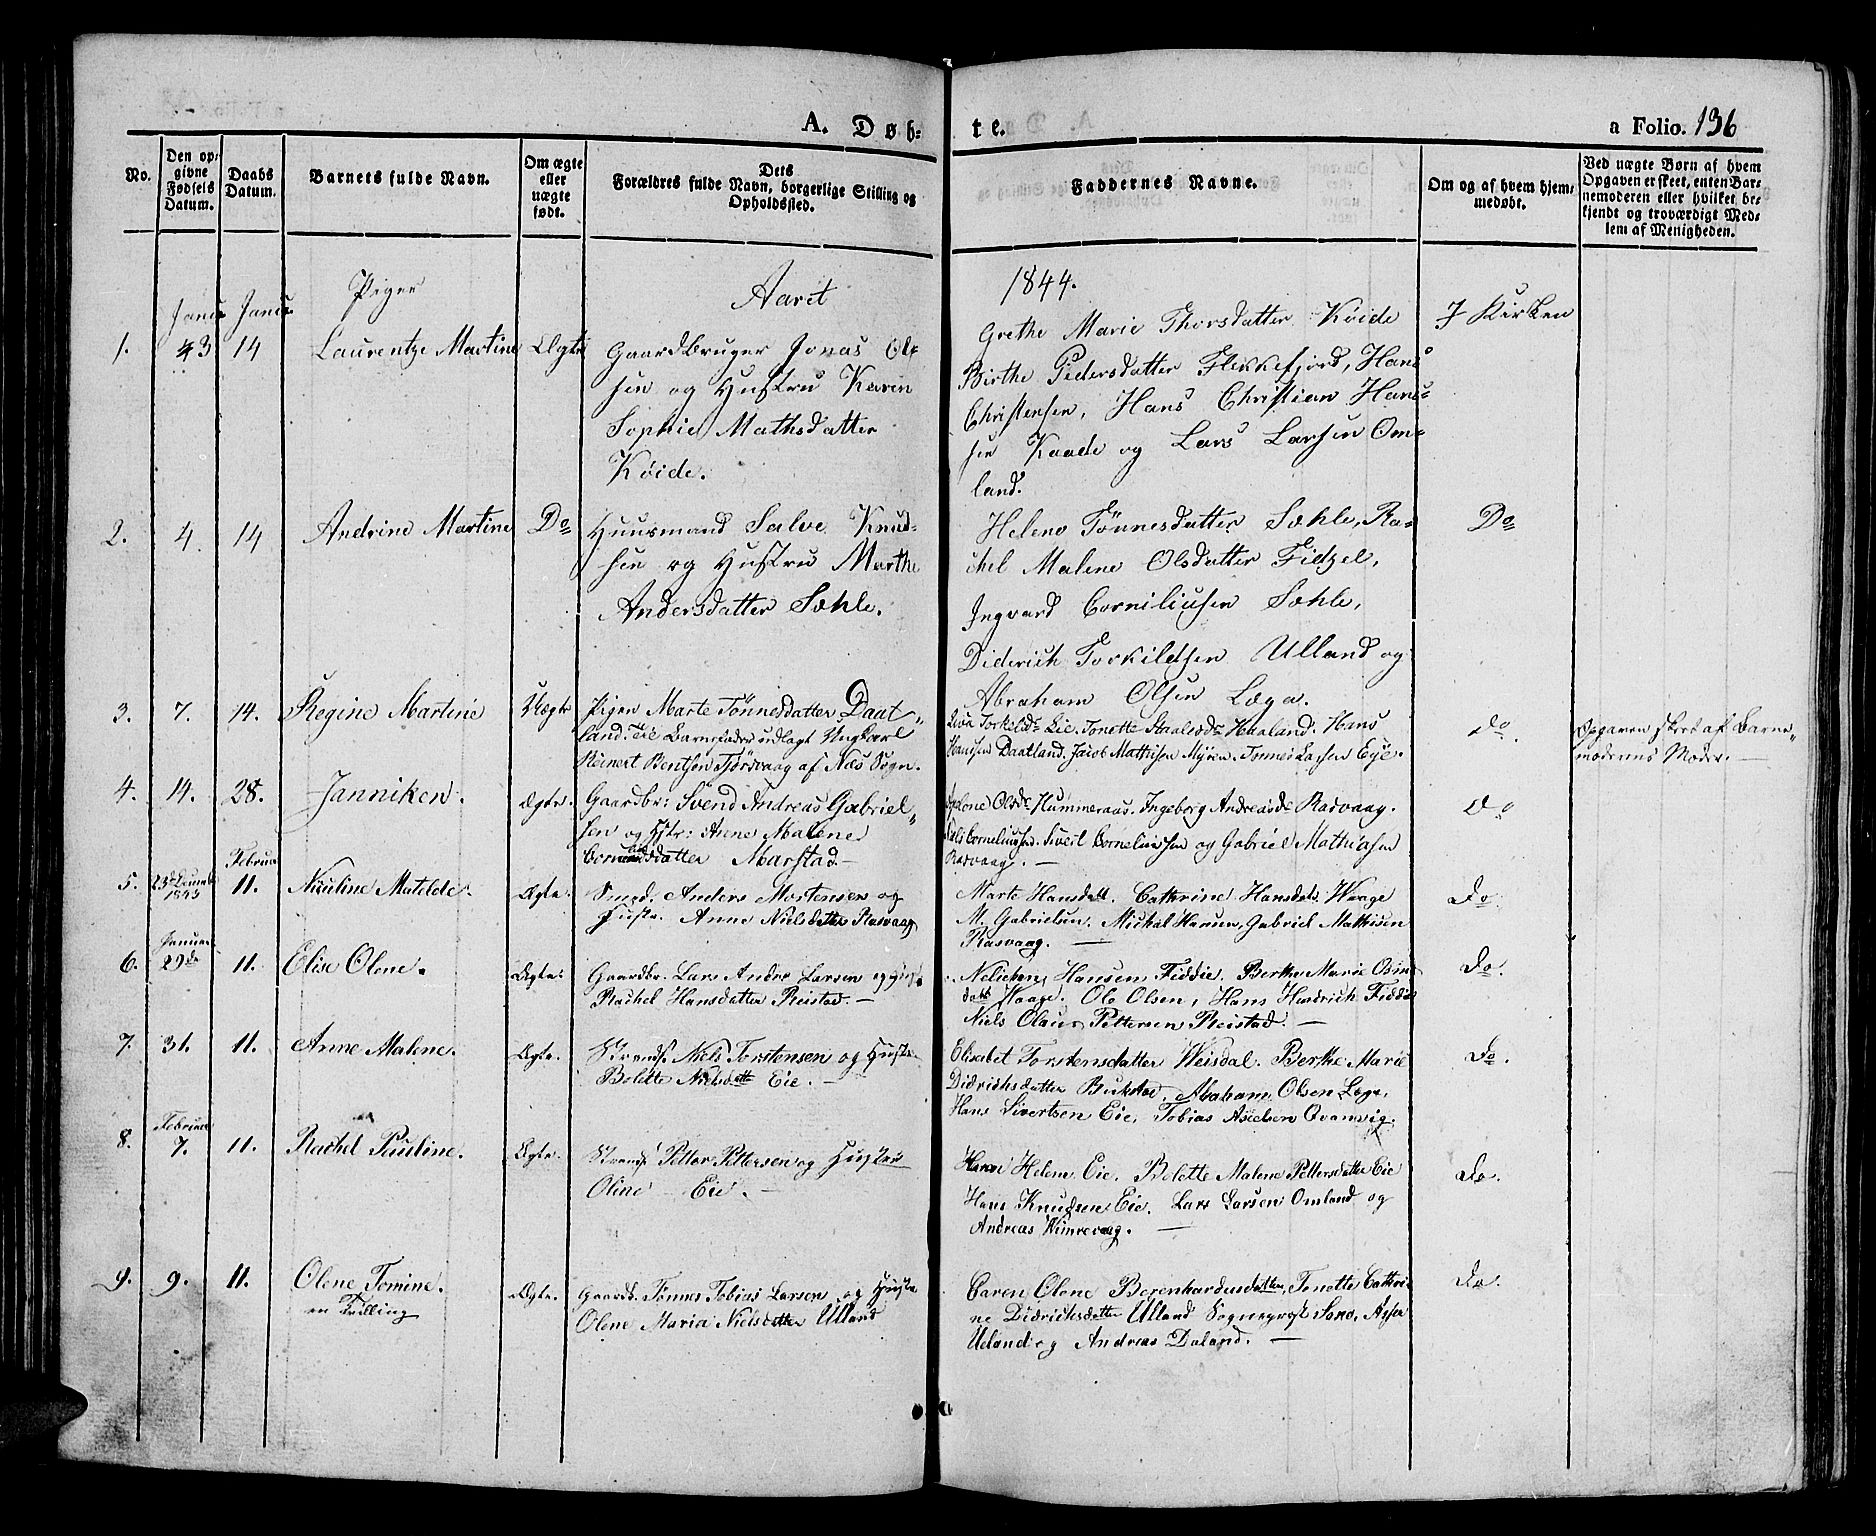 A. Døb-
te.
a Folio. 136
No.
Den op-
givne
Fødsels
Datum.
Daabs
Datum.
Barnets fulde Navn.
Om ægte
eller
uægte
født.
Dets
Forældres fulde Navn, borgerlige Stilling og
Opholdssted.
Faddernes Navne.
Om og af hvem hjem-
medøbt.
Ved uægte Børn af hvem
Opgaven er skeet, enten Bar-
nemoderen eller hvilket be-
kjendt og troværdigt Med-
lem af Menigheden.
Piger
Aaret
1844.
Janur Janur
1. 3 14 Laurentze Martine Ægte
Gaardbruger Jonas Ol-
sen og Hustru Karin
Sophie Mathsdatter
Køide.
Grethe Marie Thorsdatter Køide
Birthe Pedersdatter Flekkefjord, Hans
Christensen, Hans Christian Han-
sen Kaade og Lars Larsen Om-
land.
I Kirken
2. 4. 14 Andrine Martine Do
Huusmand Salve Knud-
sen og Hustru Marthe
Andersdatter Sæhle.
Helene Tønnesdatter Sæhle, Ra-
chel Malene Olsdatter Fidtzel,
Ingvard Corneliusen Sæhle,
Diderich Torkildsen Ulland og
Abraham Olsen Læga.
Do
3. 7. 14. Regine Martine Uægte
Pigen Marte Tønnesdatter Daat-
land. Til Barnefader udlagt Ungkarl
Reinert Bentsen Tjørsvaag af Næs Sogn.
Torkildsdr Eie. Tonette Staalesdr Haaland. Hans
Hansen Daatland. Jacob Mathisen Myren. Tønnes Larsen Eye.
do.
Opgaven skeet af Barne-
moderens Moder. —
4. 14. 28. Janniken. Ægte.
Gaardbr: Svend Andreas Gabriel-
sen og Hstr: Anne Malene
Corneliusdatter Marstad.—
Olsdr Hummeraas. Ingeborg Andreasdr Rasvaag.
Corneliussen. Sivert Corneliussen og Gabriel Mathiasen
Rasvaag. —
do
Februar
5. 23d Decemb 1843 11. Nicoline Matilde. Ægte.
Smed. Anders Mortensen og
Hustr. Anne Nielsdatter Rasvaag
Marte Hansdatt. Cathrine Hansdatt Waage
M. Gabrielsen. Mickal Hansen, Gabriel Mathisen
Rasvaag. —
Do.
Januar
6. 29de 11. Elise Olene. Ægte.
Gaardbr. Lars Andr. Larsen og Hust
Rachel Hansdatter Reistad. —
Hansen Fiddie. Berthe Marie
datt Waage. Ole Olsen, Hans Hendrich Fiddie
Niels Olaus Pettersen Reistad. —
Do.
7. 31. 11. Anne Malene. Ægte.
Strands. Niels Torstensen og Hustr.
Bolette Nielsdatt Eie. —
Elisabet Torstensdatter Weisdal. Berthe Marie
Didrichsdatter Bukstad. Abraham Olsen Lega.
Hans Sivertsen Eie, Tobias Axelsen Qvanvig.
Do.
Februar
8. 7. 11. Rachel Pauline. Ægte.
Strands Petter Pettersen og Hustru
Oline — Eie. —
Helene Eie. Bolette Malene Pettersdatter Eie
Hans Knudsen Eie. Lars Larsen Omland og
Andreas —
Do.
9. 9. 11. Olene Tomine.
en Tvilling
Ægte.
Gaardb. Tønnes Tobias Larsen og Hustr.
Olene Maria Nielsdatter Ulland
Caren Olene Berenhardusdatter, Tonette Cathri-
ne Didrichsdatter Ulland Sogneprest
Ueland og Andreas Daland. —
Do.